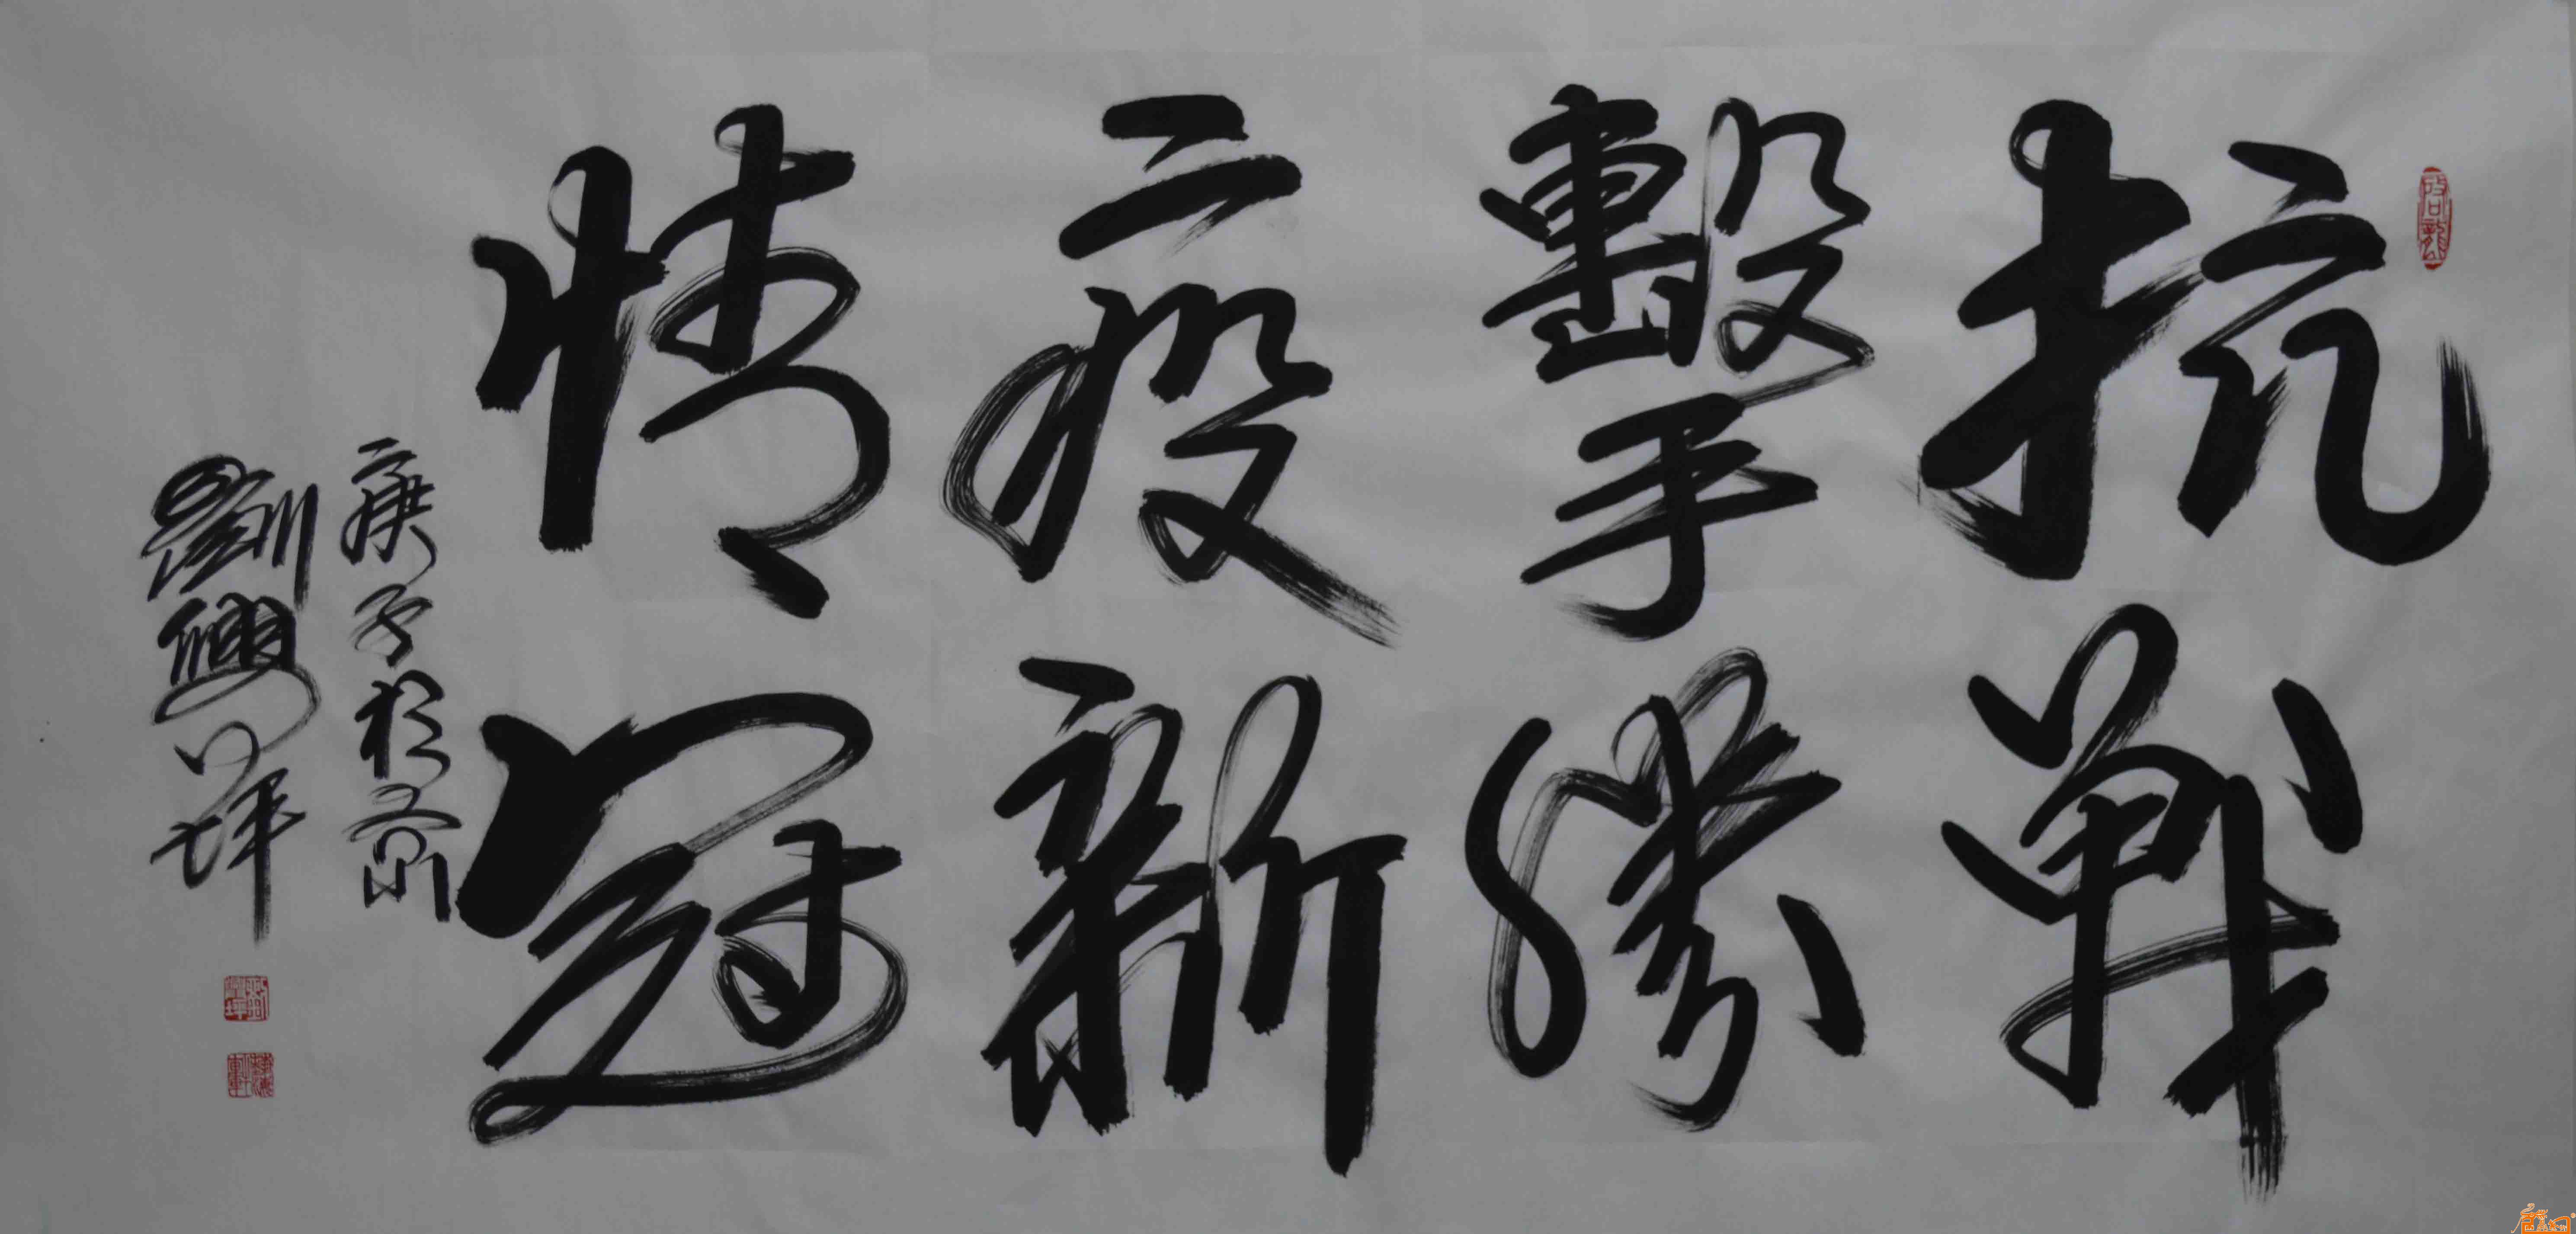 抗擊疫情
戰勝新冠
庚子於京
劉興坪